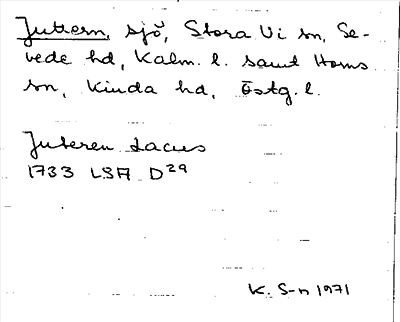 Juttern, sjö, Stora Vi sn, Se-
vede hd, Kalm. l. samt Horns
sn, Kinda hd, Östg. l.
Juteren Lacus
1733 LSA D29
K. S-n 1971